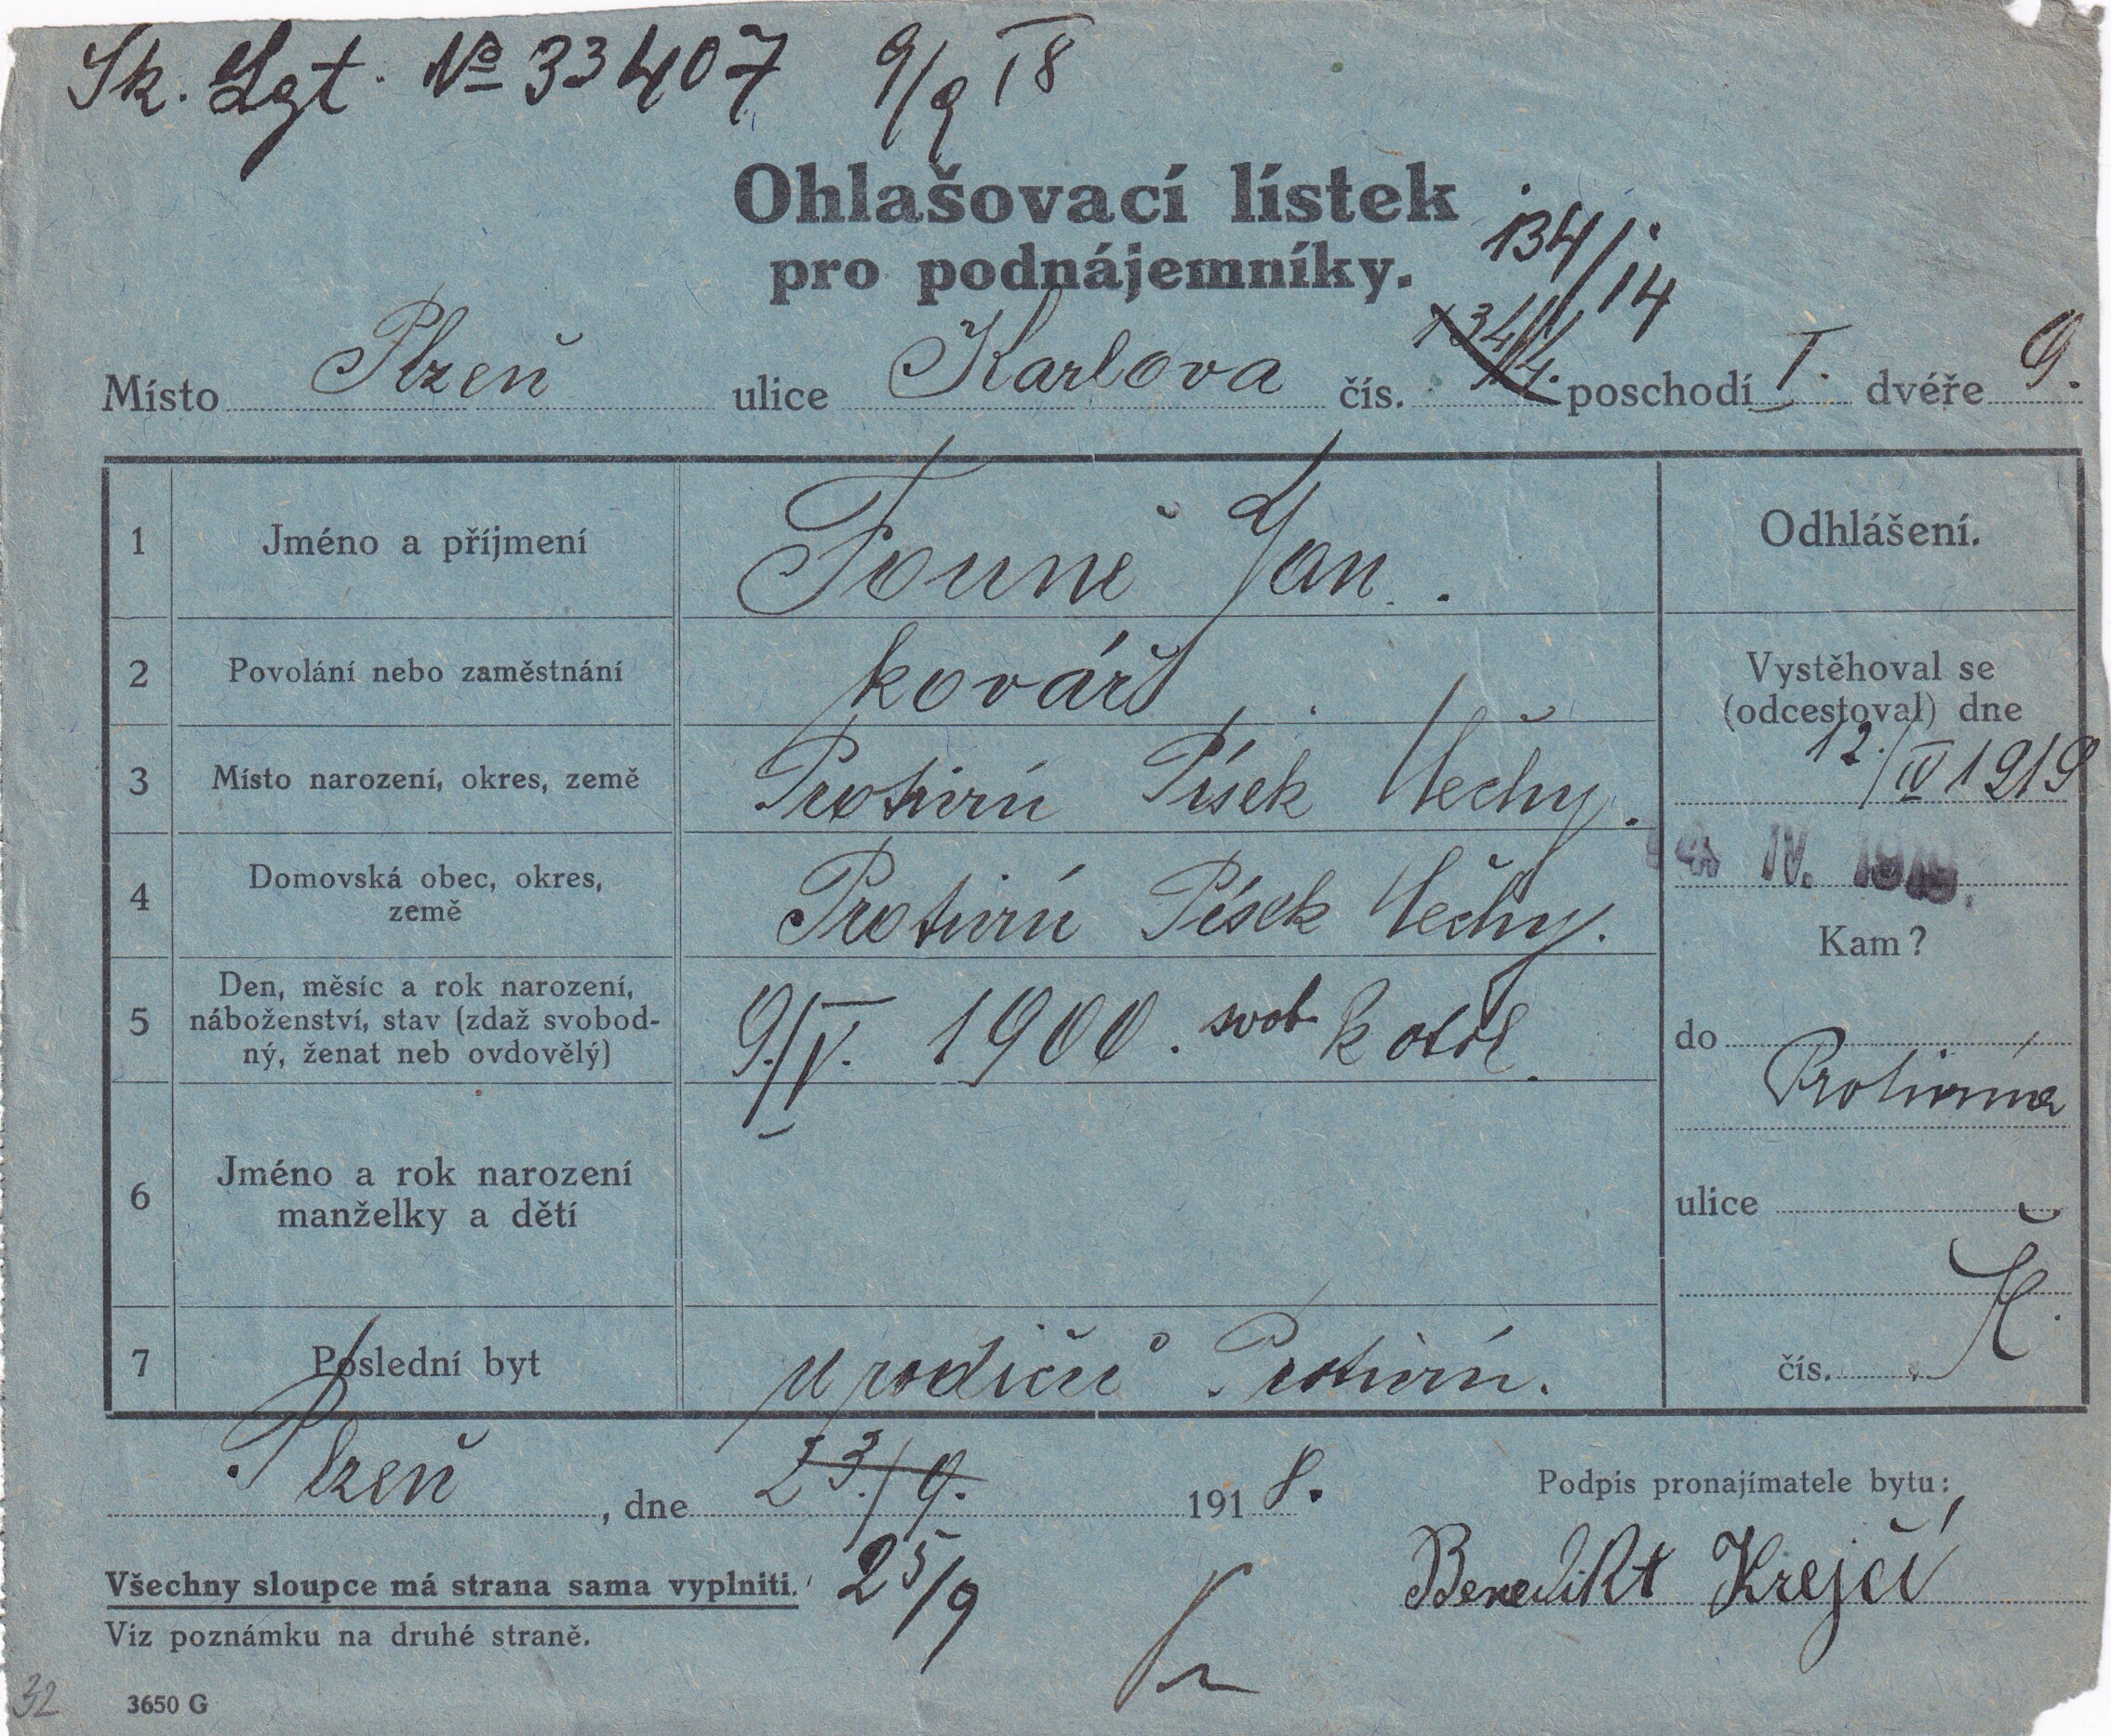 Sk. Lgt. № 33407 9/9 18
Ohlašovací lístek
pro podnájemníky.
134/14
Místo Plzeň ulice Karlova čís. 134/14. poschodí I. dvéře 9.
1 Jméno a příjmení Founě Jan.
Odhlášení.
2 Povolání nebo zaměstnání kovář
Vystěhoval se
(odcestoval) dne
12./IV 1919
3 Místo narození, okres, země Protivín Písek Čechy.
14. IV. 1919.
4 Domovská obec, okres,
země
Protivín Písek Čechy.
Kam?
5 Den, měsíc a rok narození,
náboženství, stav (zdaž svobod-
ný, ženat neb ovdovělý)
9./V. 1900. svob. katol.
do Protivína
6 Jméno a rok narození
manželky a dětí
ulice
Č.
7 Poslední byt u rodičů Protivín.
čís.
Plzeň, dne 23./9. 1918.
Podpis pronajímatele bytu:
Benedikt Krejčí
Všechny sloupce má strana sama vyplniti. 25/9
Viz poznámku na druhé straně.
32 3650 G